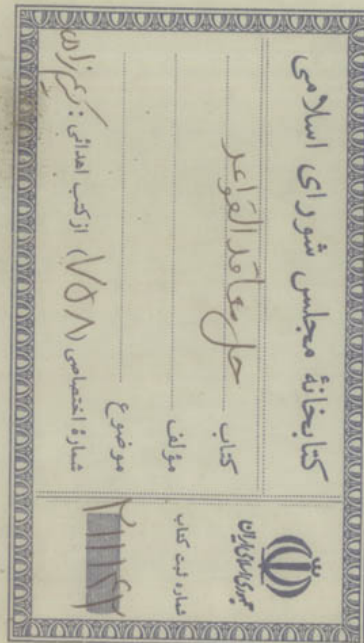 کتابخانهٔ مجلس شورای اسلامی
کتاب حل معاقد القواعد
مؤلف
موضوع
شمارهٔ اختصاصی (۷۵۸) از کتب اهدائی :
جمهوری اسلامی ایران
شماره ثبت کتاب